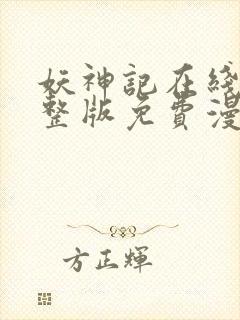 妖神記在綫
整版免費漫
方正輝